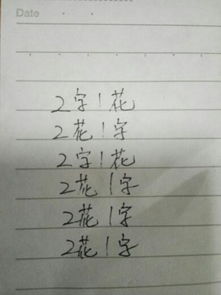 Date
2字!花
2花!字
2字!花
2花1字
2花1字
2花1字